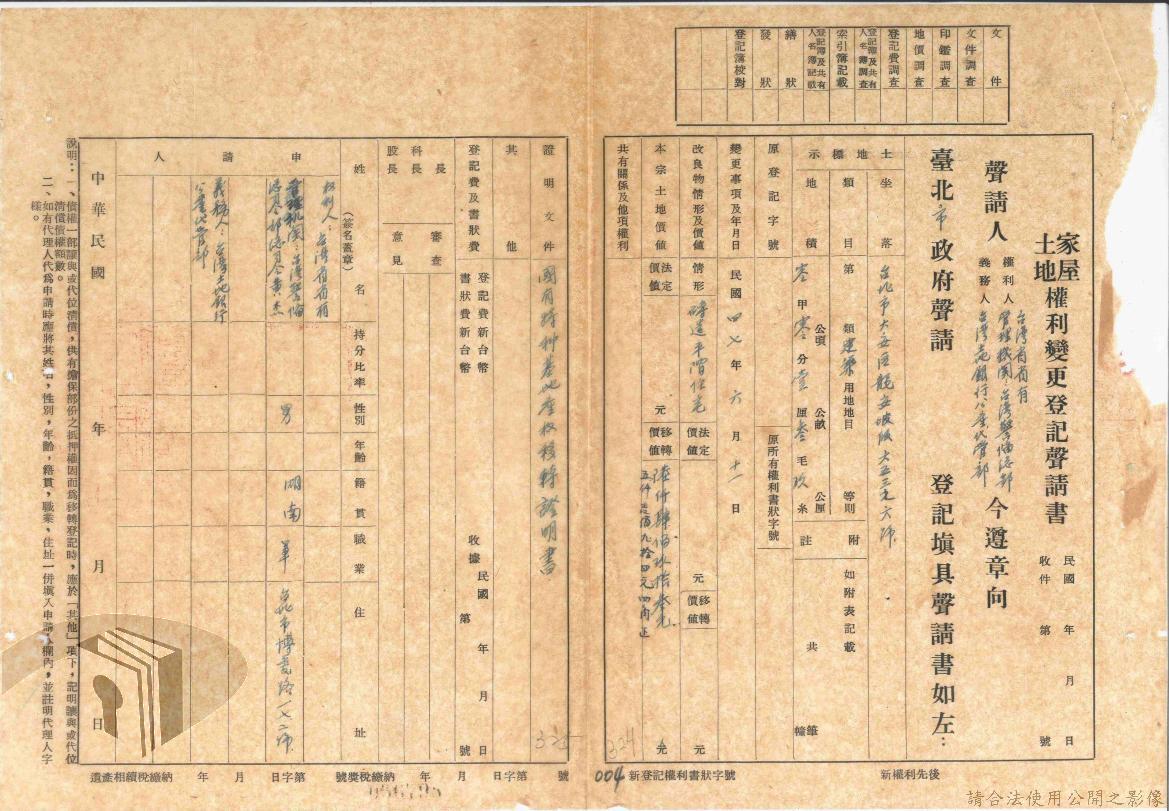 文件
文件調查
印鑑調查
地價調查
登記費調查
登記簿及共有人名簿調查
索引簿記載
登記簿及共有人名簿記載
繕狀
發狀
登記簿校對
家屋土地權利變更登記聲請書
民國 年 月 日
收件 第 號
聲請人
權利人 台灣省省有
管理機関:台灣警備總部
義務人 台灣土地銀行公產代管部
今遵章向
臺北市政府聲請 登記填具聲請書如左:
土地標示
坐落 台北市大安區龍安坡段大五三之六號
類目 第 類建築用地地目 等則
地積 零甲零分壹厘叁毛玖糸
公頃 公畝 公厘
附註 如附表記載 共 筆 幢
原登記字號
原所有權利書狀字號
變更事項及年月日 民國四七年六月十一日
改良物情形及價值 情形 磚造平層住宅
法定價值 元
移轉價值 元
本宗土地價值 法定價值 元
移轉價值 陸仟肆佰玖拾叁元 元
共有關係及他項權利
證明文件 國有特種基地產權移轉證明書
其他
登記費及書狀費
登記費新台幣
書狀費新台幣
收據 民國 年 月 日
第 號
科長
股長
審查意見
申請人
姓名
(簽名蓋章)
持分比率
性別
年齡
籍貫
職業
住址
權利人:台灣省省有
管理机関:台灣警備
總司令部總司令黃杰
男
湖南
軍
台北市博愛路一七二號
義務人:台灣土地銀行
公產代管部
中華民國 年 月 日
說明:一、債權一部讓與或代位清償,供有擔保部份之抵押權因而爲移轉登記時,應於「其他」項下,記明讓與或代位
清償債權額數。
二、如有代理人代爲申請時應將其姓名,性別,年齡,籍貫,職業,住址一併塡入申請人欄內,並註明代理人字
樣。
新權利先後
新登記權利書狀字號
004
324
325
契稅繳納 年 月 日字第 號
遺產相續稅繳納 年 月 日字第 號
請合法使用公開之影像